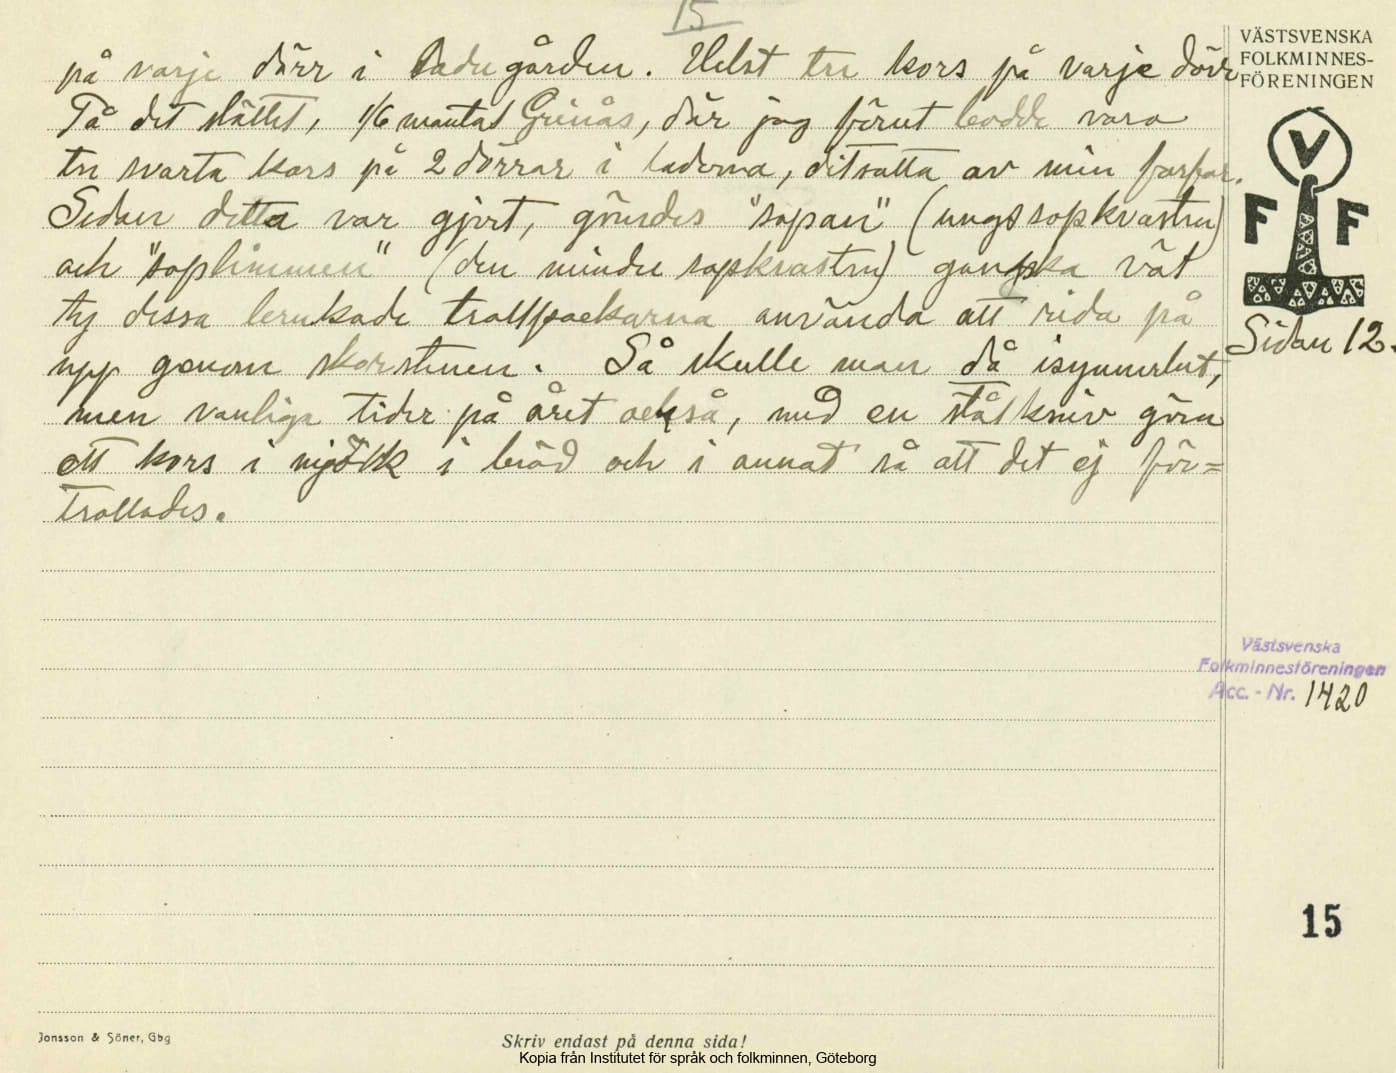 15
på varje dörr i Ladugården. Helst tre kors på varje dörr
På det stället, 1/6 mantal Grinås, där jag förut bodde vara
tre svarta kors på 2 dörrar i laderna, ditsatta av min farfar.
Sedan detta var gjort, gömdes "sopan" (ungssopkvasten)
och "soplimmen" (den mindre sopkvasten) ganska väl
ty dessa brukade trollpackarna använda att rida på
upp genom skorstenen. Så skulle man då isynnerhet,
men vanliga tider på året också, med en stålkniv göra
ett kors i mjölk i bröd och i annat så att det ej för=
trollades.
VÄSTSVENSKA
FOLKMINNES-
FÖRENINGEN
V
F F
Sidan 12.
Västsvenska
Folkminnesföreningen
Acc. - Nr. 1420
15
Jonsson & Söner, Gbg
Skriv endast på denna sida!
Kopia från Institutet för språk och folkminnen, Göteborg